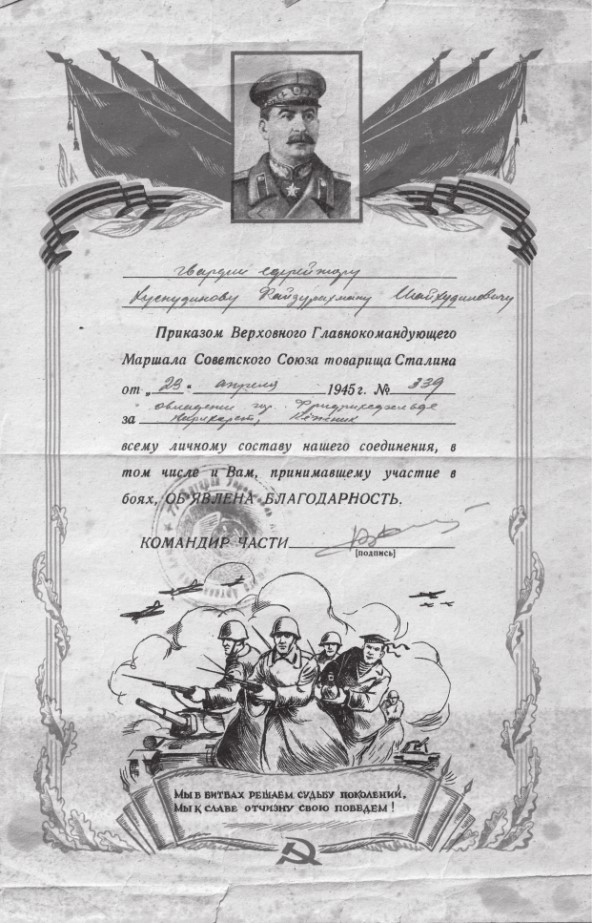 гвардии ефрейтору
Хуснудинову Файзурахману Шайхудиновичу
Приказом Верховного Главнокомандующего
Маршала Советского Союза товарища Сталина
от „23“ апреля 1945 г. № 339
овладение гор. Фридрихсфельде
за Карлхорст, Кёпеник
всему личному составу нашего соединения, в
том числе и Вам, принимавшему участие в
боях, ОБ'ЯВЛЕНА БЛАГОДАРНОСТЬ.
КОМАНДИР ЧАСТИ
[подпись]
МЫ В БИТВАХ РЕШАЕМ СУДЬБУ ПОКОЛЕНИЙ.
МЫ К СЛАВЕ ОТЧИЗНУ СВОЮ ПОВЕДЕМ!